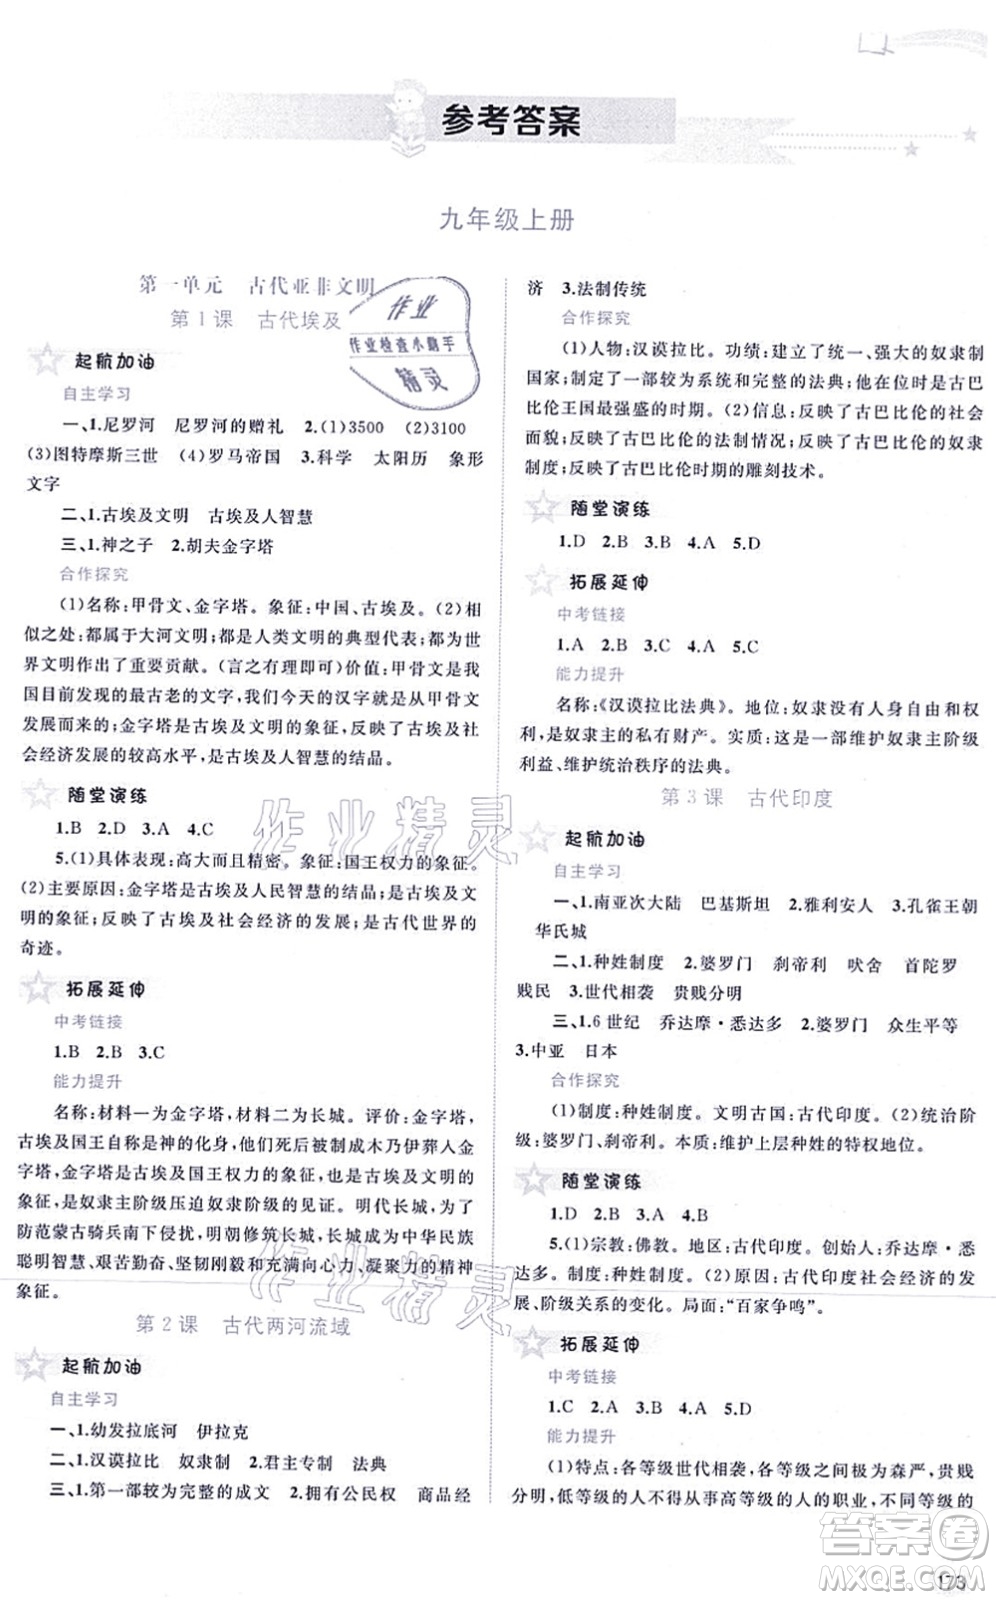 参考答案
九年级上册
第一单元　古代亚非文明
第1课　古代埃及
起航加油
自主学习
一、1.尼罗河　尼罗河的赠礼　2.(1)3500　(2)3100
(3)图特摩斯三世　(4)罗马帝国　3.科学　太阳历　象形
文字
二、1.古埃及文明　古埃及人智慧
三、1.神之子　2.胡夫金字塔
合作探究
(1)名称:甲骨文、金字塔。象征:中国、古埃及。(2)相
似之处:都属于大河文明;都是人类文明的典型代表;都为世
界文明作出了重要贡献。(言之有理即可)价值:甲骨文是我
国目前发现的最古老的文字,我们今天的汉字就是从甲骨文
发展而来的;金字塔是古埃及文明的象征,反映了古埃及社
会经济发展的较高水平,是古埃及人智慧的结晶。
随堂演练
1.B　2.D　3.A　4.C
5.(1)具体表现:高大而且精密。象征:国王权力的象征。
(2)主要原因:金字塔是古埃及人民智慧的结晶;是古埃及文
明的象征;反映了古埃及社会经济的发展;是古代世界的
奇迹。
拓展延伸
中考链接
1.B　2.B　3.C
能力提升
名称:材料一为金字塔,材料二为长城。评价:金字塔,
古埃及国王自称是神的化身,他们死后被制成木乃伊葬人金
字塔,金字塔是古埃及国王权力的象征,也是古埃及文明的
象征,是奴隶主阶级压迫奴隶阶级的见证。明代长城,为了
防范蒙古骑兵南下侵扰,明朝修筑长城,长城成为中华民族
聪明智慧、艰苦勤奋、坚韧刚毅和充满向心力、凝聚力的精神
象征。
第2课　古代两河流域
起航加油
自主学习
一、1.幼发拉底河　伊拉克
二、1.汉谟拉比　奴隶制　2.君主专制　法典
三、1.第一部较为完整的成文　2.拥有公民权　商品经
济　3.法制传统
合作探究
(1)人物:汉谟拉比。功绩:建立了统一、强大的奴隶制
国家;制定了一部较为系统和完整的法典;他在位时是古巴
比伦王国最强盛的时期。(2)信息:反映了古巴比伦的社会
面貌;反映了古巴比伦的法制情况;反映了古巴比伦的奴隶
制度;反映了古巴比伦时期的雕刻技术。
随堂演练
1.D　2.B　3.B　4.A　5.D
拓展延伸
中考链接
1.A　2.B　3.A　4.A　5.C
能力提升
名称:《汉谟拉比法典》。地位:奴隶没有人身自由和权
利,是奴隶主的私有财产。实质:这是一部维护奴隶主阶级
利益、维护统治秩序的法典。
第3课　古代印度
起航加油
自主学习
一、1.南亚次大陆　巴基斯坦　2.雅利安人　3.孔雀王朝
华氏城
二、1.种姓制度　2.婆罗门　刹帝利　吠舍　首陀罗
贱民　3.世代相袭　贵贱分明
三、1.6世纪　乔达摩·悉达多　2.婆罗门　众生平等
3.中亚　日本
合作探究
(1)制度:种姓制度。文明古国:古代印度。(2)统治阶
级:婆罗门、刹帝利。本质:维护上层种姓的特权地位。
随堂演练
1.D　2.B　3.A　4.C
5.(1)宗教:佛教。地区:古代印度。创始人:乔达摩·悉
达多。影响:佛教创立后得到广泛传播。(2)原因:古代印度社会经济的发
展,阶级关系的变化。局面:“百家争鸣”。
拓展延伸
中考链接
1.C　2.A　3.B　4.A　5.D
能力提升
(1)特点:各等级世代相袭,各等级的界线极为森严,贵贱
分明,低等级的人不得从事高等级的人的职业,不同等级的
173
作业
作业检查小助手
精灵
作业精灵
作业精灵
答案圈
MXQE.COM